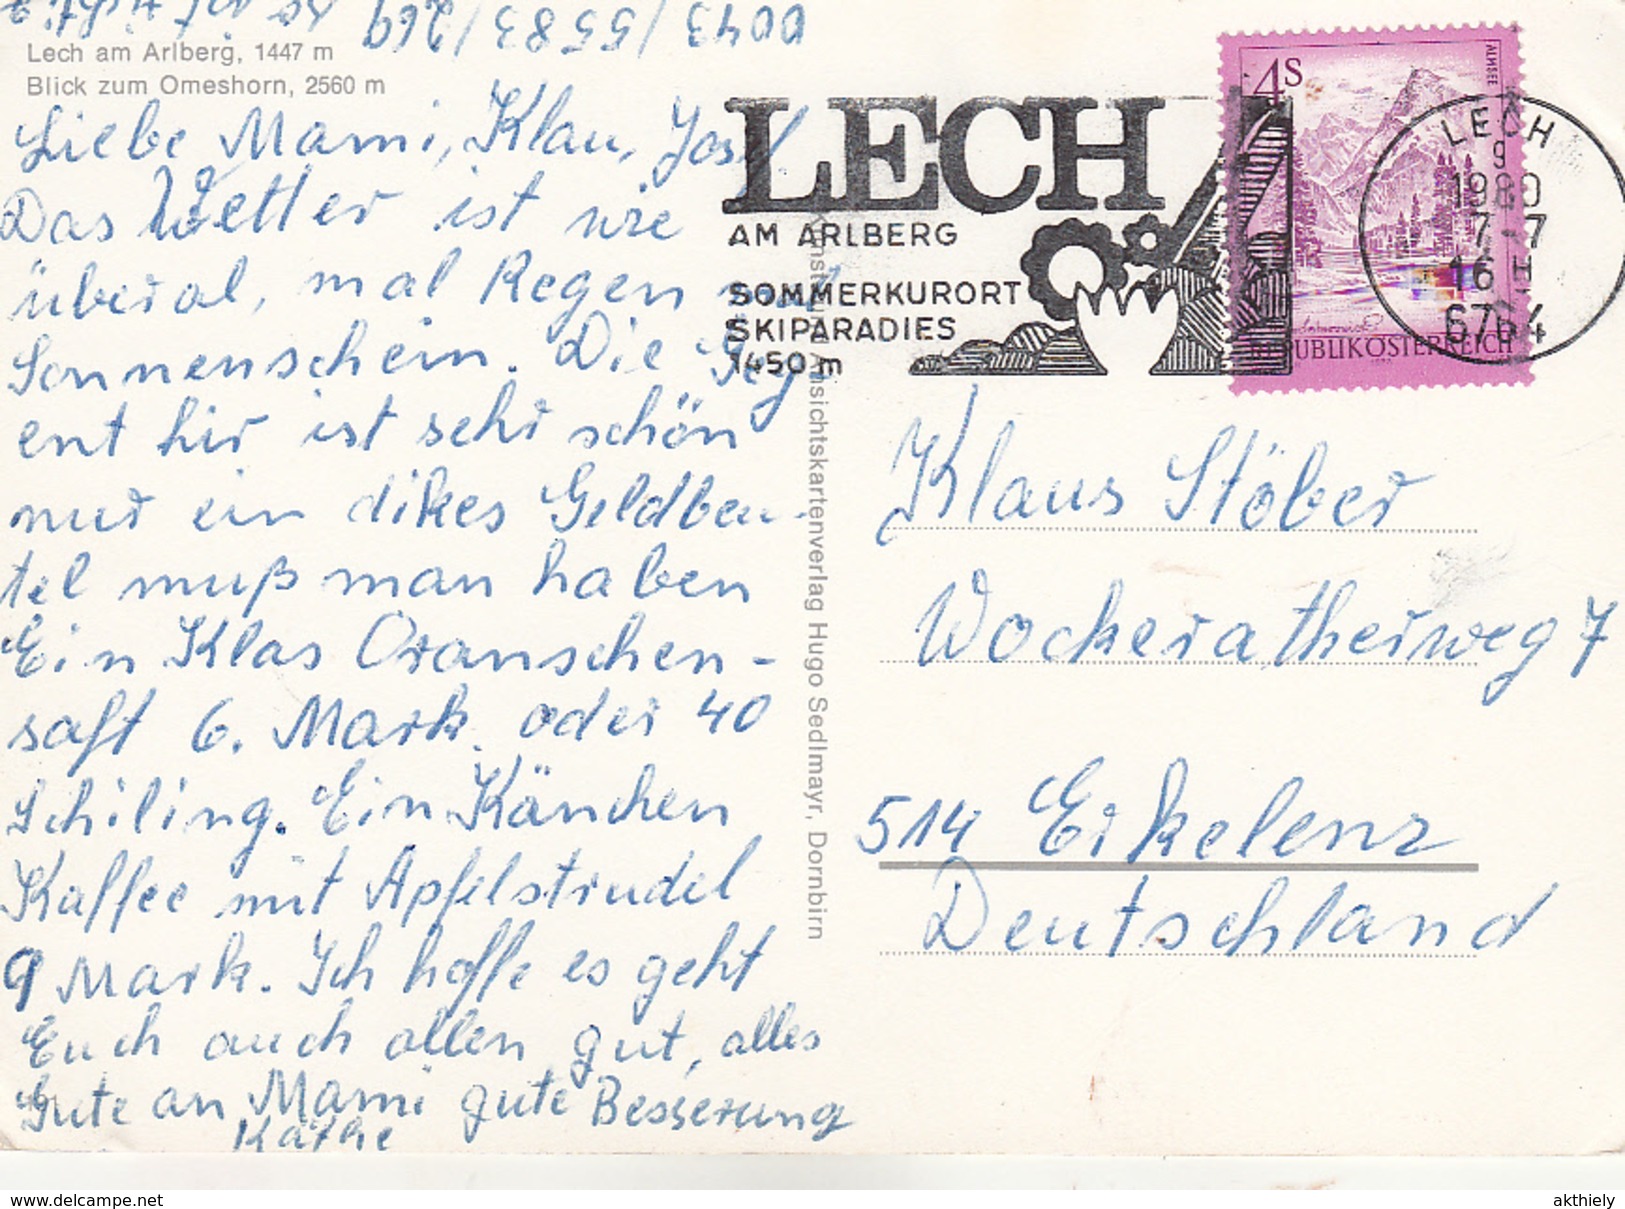 0043/5583/269
Lech am Arlberg, 1447 m
Blick zum Omeshorn, 2560 m
Liebe Mami, Klau, Josef
Das Wetter ist wie
überal, mal Regen mal
Sonnenschein. Die Geg-
ent hir ist sehr schön
nur ein dikes Geldbeu-
tel muß man haben
Ein Klas Oranschen-
saft 6. Mark. oder 40
Schiling. Ein Känchen
Kaffee mit Apfelstrudel
9 Mark. Ich hoffe es geht
Euch auch allen gut, alles
Gute an Mami gute Besserung
Käthe
Kunst und Ansichtskartenverlag Hugo Sedlmayr, Dornbirn
LECH
AM ARLBERG
SOMMERKURORT
SKIPARADIES
1450 m
4S
ALMSEE
REPUBLIK ÖSTERREICH
LECH
9
1980
7-7
16 H
6764
Klaus Stöber
Wockeratherweg 7
514 Erkelenz
Deutschland
www.delcampe.net
akthiely